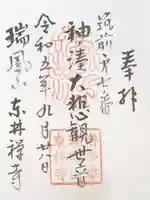 奉拝
筑前第七番
神湊大悲心観世音
令和五年九月廿八日
瑞鳳山東井禅寺